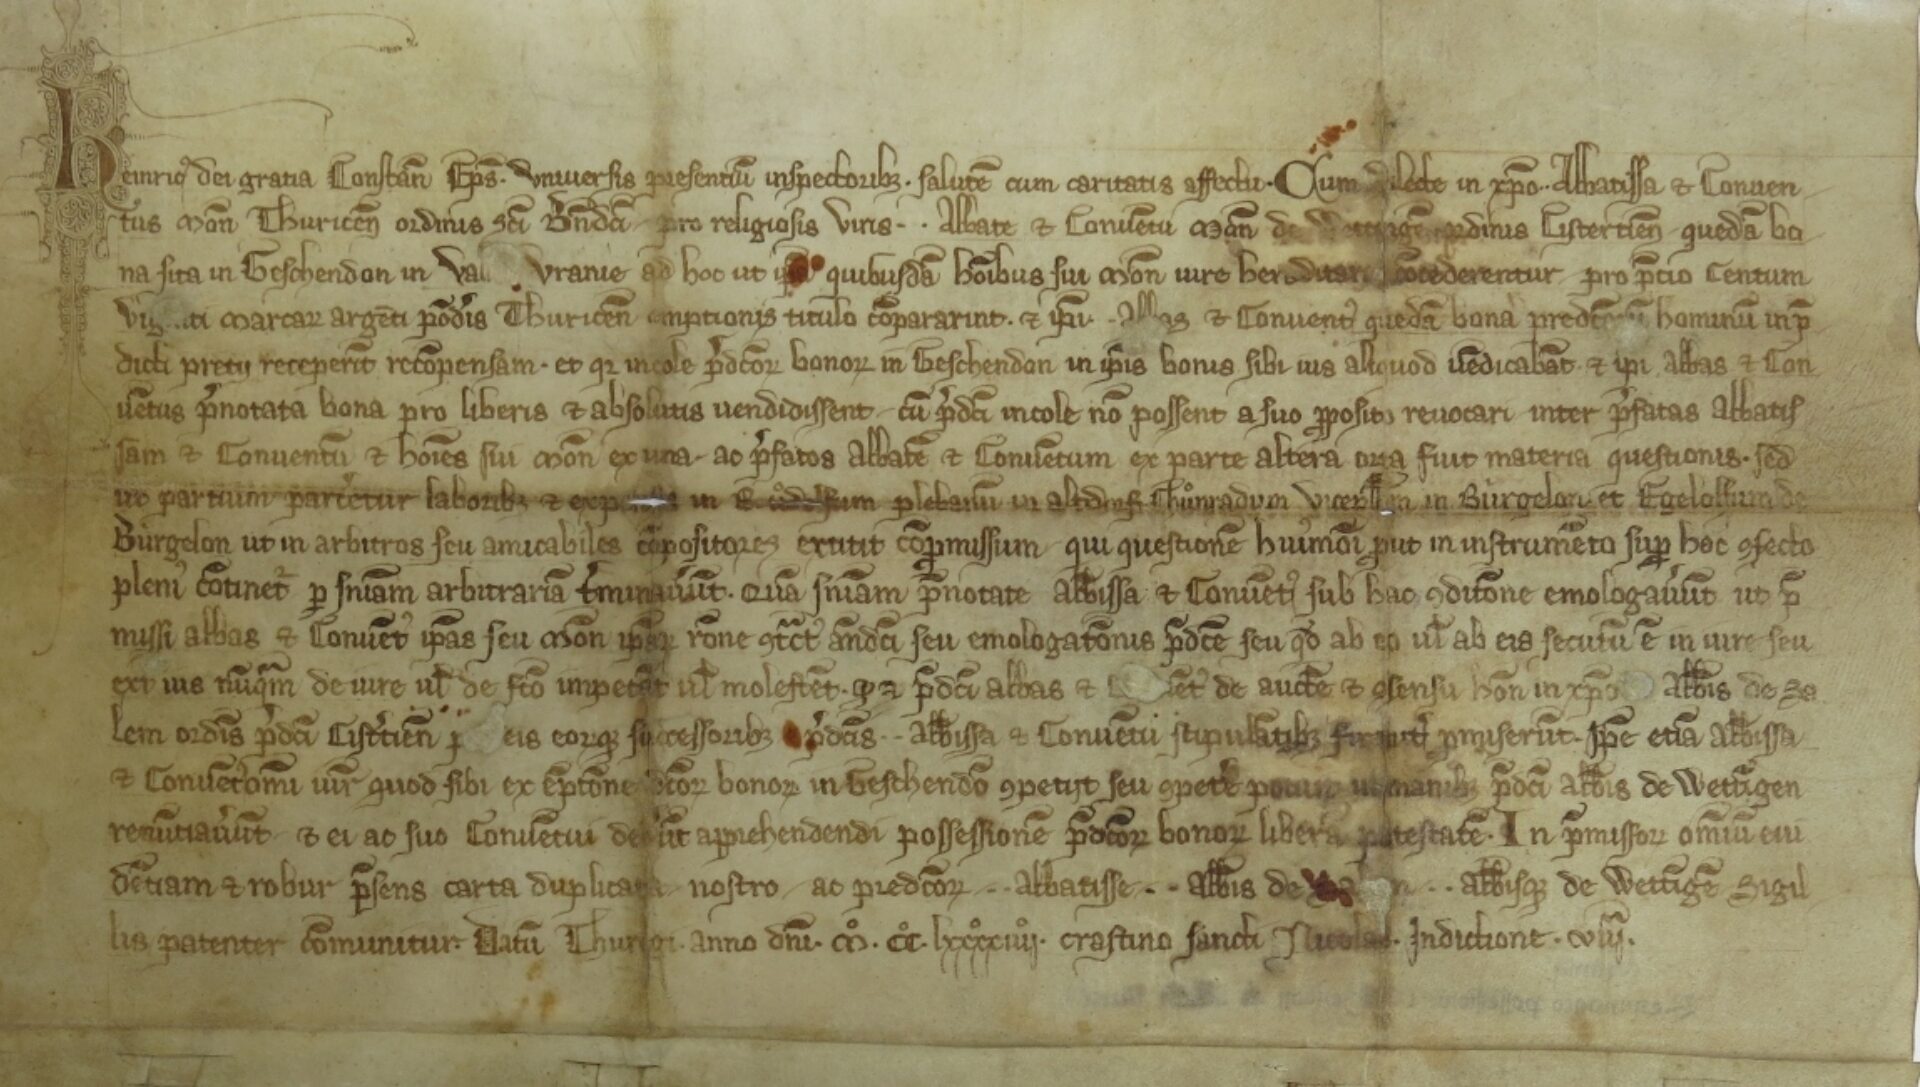 Heinricꝰ dei gratia Constan̄ Ep̄s. vniuersis presentiū inspectoribꝫ. salutē cum caritatis affectu. Cum dilecte in xp̄o. Abbatissa ⁊ Conuen
tus Mon̄ Thuricen̄ ordinis sc̄i Bn̄dc̄i pro religiosis viris. . Abbate ⁊ Conuētu Mon̄ de Wettingē ordinis Cisterciēn quedā bo
na sita in Geschendon in Vranie ad hoc ut quibusdā hoībus sui Mon̄ iure hereditario cōcederentur pro p̄cio Centum
viginti Marcarꝝ argēti pōdis Thuricen̄ emptionis titulo cōpararint. ⁊ ip̄i. Abbas ⁊ Conuentꝰ quedā bona hominū in p̄
dicti pretij receperīt recōpensam. et qꝛ incole p̄dc̄orꝝ bonorꝝ in Geschendon in ip̄is bonis sibi ius aliquod uēdicabāt ⁊ ip̄i abbas ⁊ Con
uētus p̄notata bona pro liberis ⁊ absolutis uendidissent cū p̄dc̄i incole nō possent a suo ꝓposito reuocari inter p̄fatas abbatis
sam ⁊ Conuentū ⁊ hoīes sui Mon̄ ex una ac p̄fatos Abbatē ⁊ Conuētum ex parte altera orta fuit materia questionis. sed
ut partium parcetur laboribꝫ ⁊ in plebanū in altdorf Chůnradum in Bürgelon et Egelolfum de
Bürgelon ut in arbitros seu amicabiles cōpositores extitit cōpmissum qui questionē huīmōi ꝓut in instrumēto suꝑ hoc ꝯfecto
pleniꝰ cōtinet᷑ ꝑ sn̄iam arbitrariā t̄minauerūt. Quā sn̄iam p̄notate abb̄issa ⁊ Conuētꝰ sub hac ꝯditōne emologauerūt ut p̄
missi abbas ⁊ Conuētꝰ ip̄as seu Mon̄ ip̄arꝝ rōne ꝯtractꝰ an̄dc̄i seu emologatōnis p̄dc̄e seu qd̄ ab eo ul̓ ab eis secutū ē in iure seu
ext̄ ius nūq̄m de iure ul̓ de fc̄o impetāt ul̓ molestēt. p̄dc̄i abbas ⁊ de auctē ⁊ ꝯsensu hōn in xp̄o Abb̄is de Sa
lem ordīs p̄dc̄i Cist̄ciēn eis eorqꝫ successoribꝫ p̄dc̄is. . Abb̄issa ⁊ Conuētū stipulātibꝫ firmit̄ ꝓmiserūt. Ip̄e etiā abb̄issa
⁊ Conuētꝰ omī iuri quod sibi ex ēptōne dc̄orꝝ bonorꝝ in Geschendō ꝯpetijt seu ꝯpetē potuit manibꝫ p̄dc̄i abb̄is de Wettīgen
renūtiauerūt ⁊ ei ac suo Conuētui dederūt apprehendendi possessionē p̄dc̄orꝝ bonorꝝ liberā potestatē. In p̄missorꝝ omiū eui
dētiam ⁊ robur p̄sens carta duplicata nostro ac predc̄orꝝ . . abbatisse . . abb̄is de Salem . . abb̄isqꝫ de Wettīgē Sigil
lis patenter cōmunitur. Datū Thuregi. anno dn̄i. M̊. CC̊. lxxxxiiij. crastino sancti Nicolai. Indictione. viij.